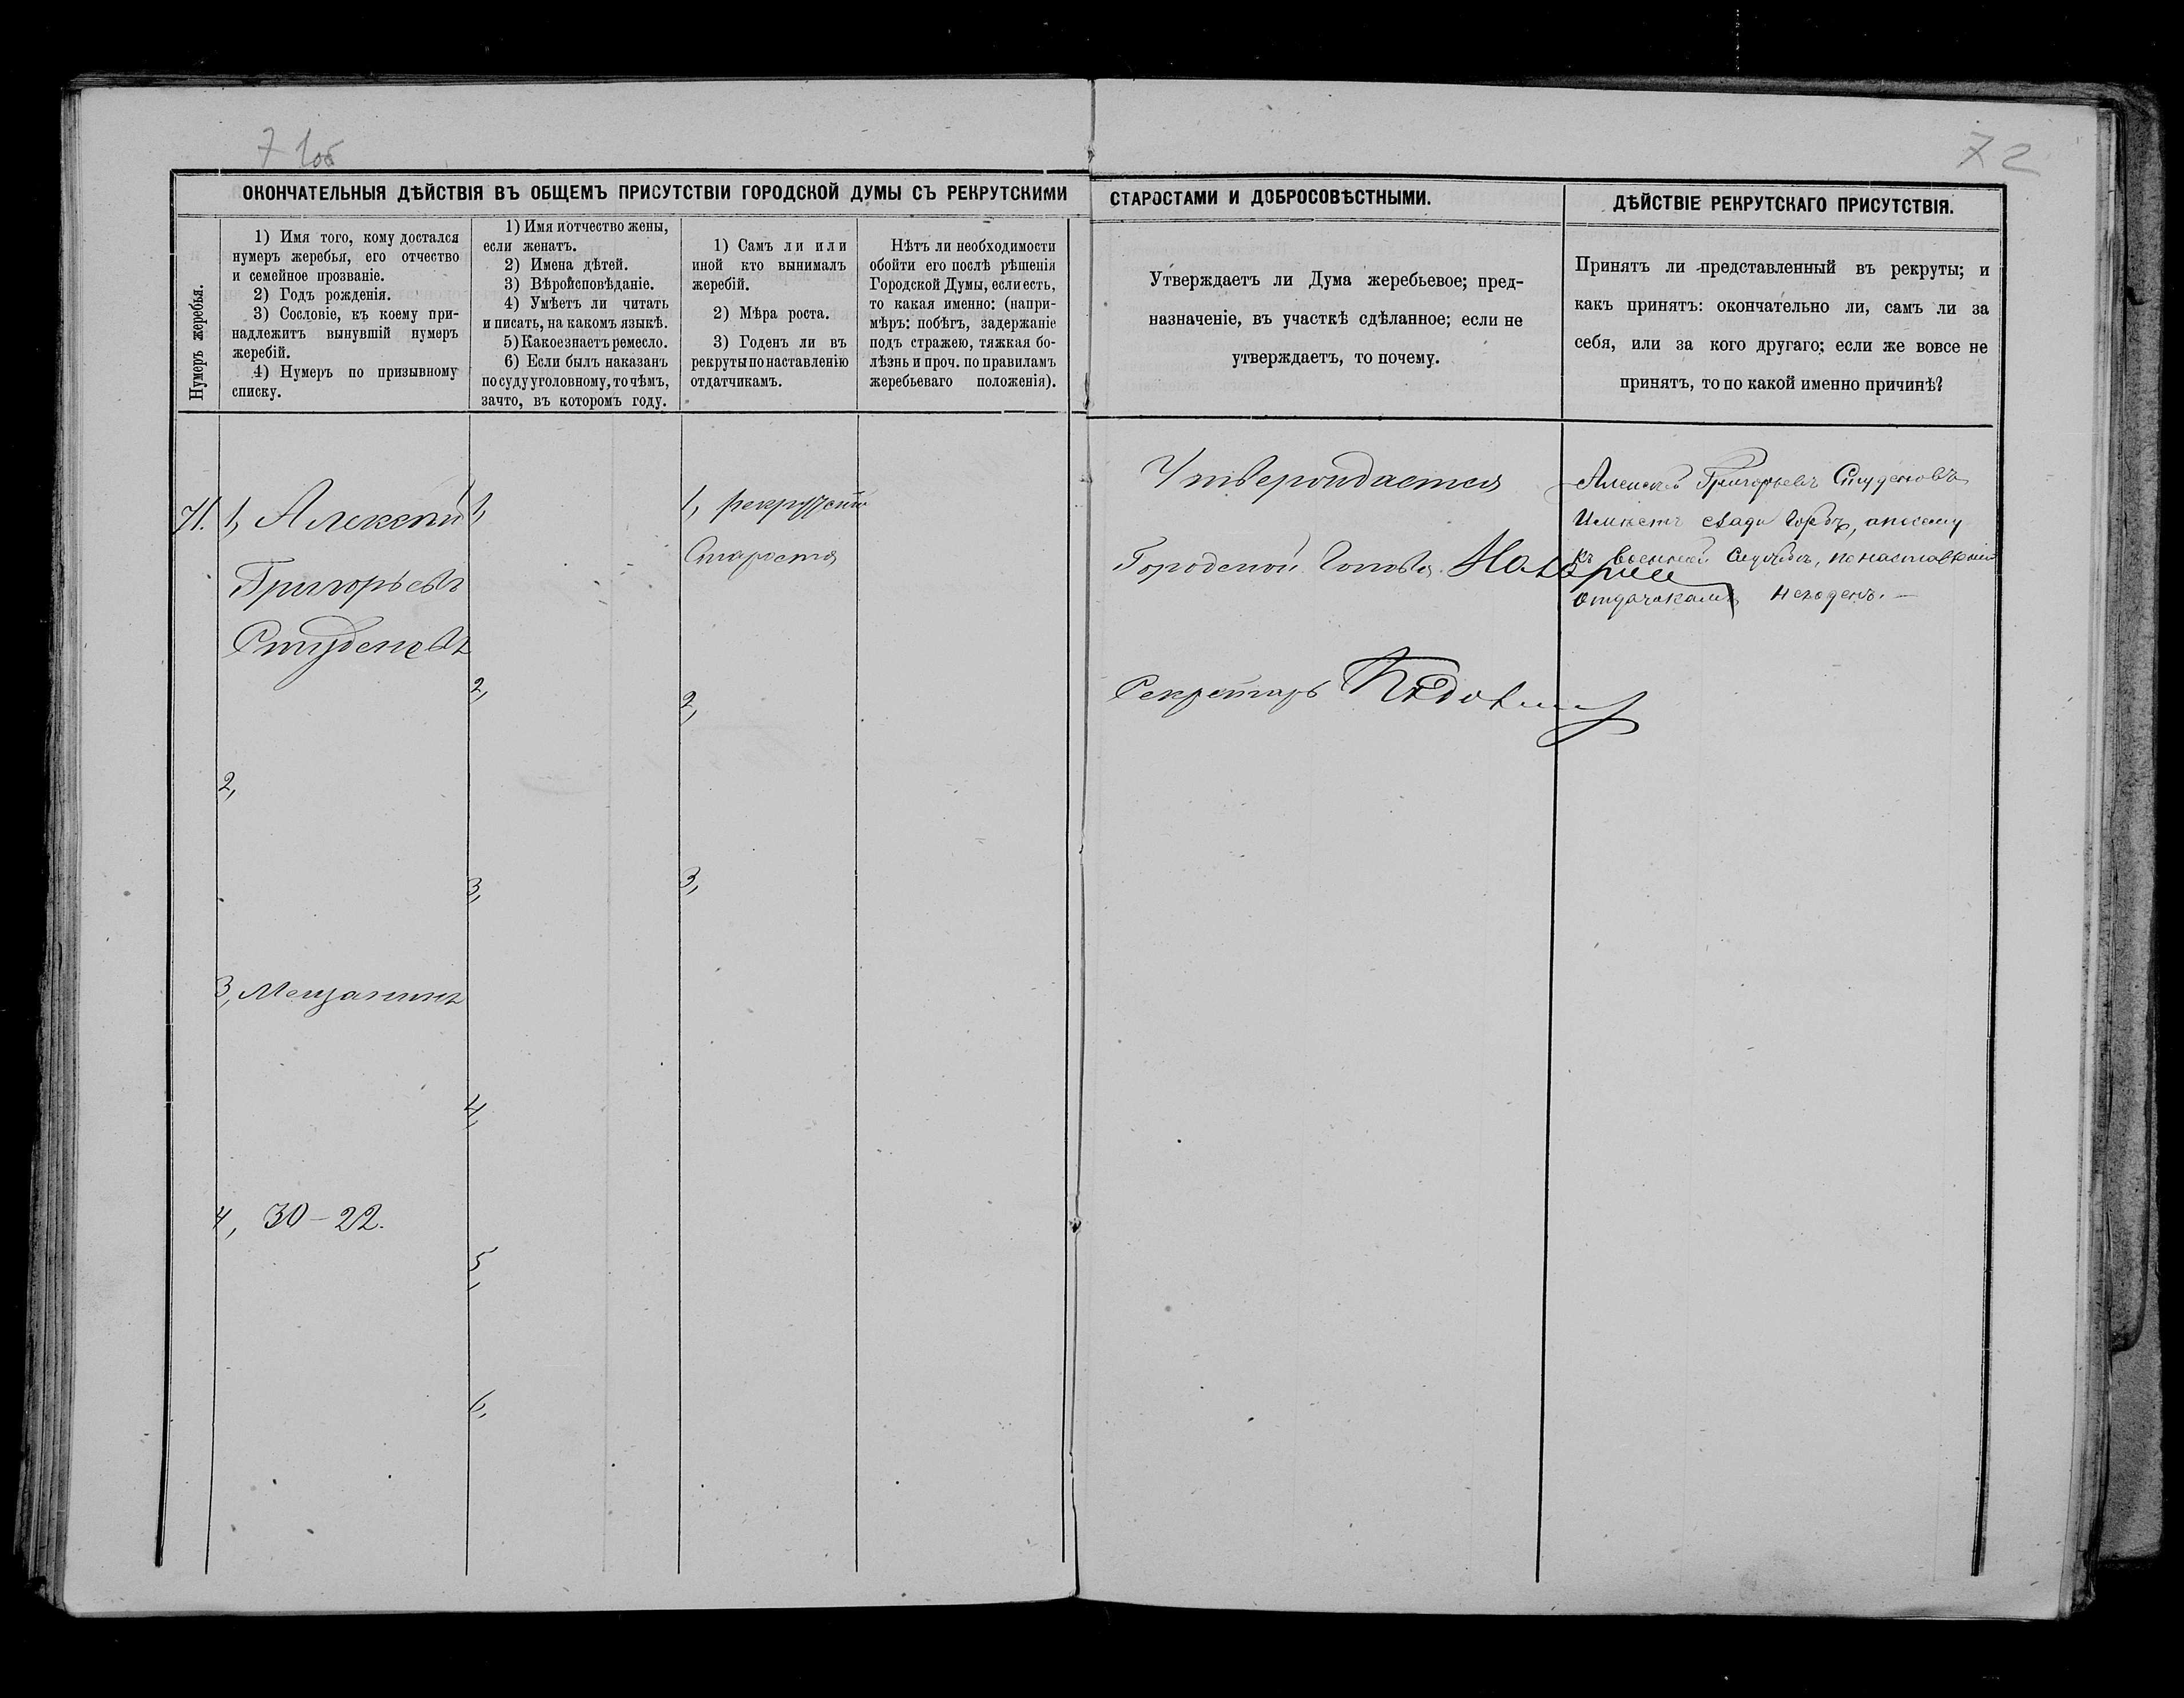 7 1об
72
ОКОНЧАТЕЛЬНЫЯ ДѢЙСТВІЯ ВЪ ОБЩЕМЪ ПРИСУТСТВІИ ГОРОДСКОЙ ДУМЫ СЪ РЕКРУТСКИМИ
СТАРОСТАМИ И ДОБРОСОВѢСТНЫМИ.
ДѢЙСТВІЕ РЕКРУТСКАГО ПРИСУТСТВІЯ.
Нумеръ жеребья.
1) Имя того, кому достался
нумеръ жеребья, его отчество
и семейное прозваніе.
2) Годъ рожденія.
3) Сословіе, къ коему при-
надлежитъ вынувшій нумеръ
жеребій.
4) Нумеръ по призывному
списку.
1) Имя и отчество жены,
если женатъ.
2) Имена дѣтей.
3) Вѣроисповѣданіе.
4) Умѣетъ ли читать
и писать, на какомъ языкѣ.
5) Какое знаетъ ремесло.
6) Если былъ наказанъ
по суду уголовному, то чѣмъ,
за что, въ которомъ году.
1) Самъ ли или
иной кто вынималъ
жеребій.
2) Мѣра роста.
3) Годенъ ли въ
рекруты по наставленію
отдатчикамъ.
Нѣтъ ли необходимости
обойти его послѣ рѣшенія
Городской Думы, если есть,
то какая именно: (напри-
мѣръ: побѣгъ, задержаніе
подъ стражею, тяжкая бо-
лѣзнь и проч. по правиламъ
жеребьеваго положенія).
Утверждаетъ ли Дума жеребьевое; пред-
назначеніе, въ участкѣ сдѣланное; если не
утверждаетъ, то почему.
Принятъ ли представленный въ рекруты; и
какъ принятъ: окончательно ли, самъ ли за
себя, или за кого другаго; если же вовсе не
принятъ, то по какой именно причинѣ?
71.
1, Алексѣй
Григорьевъ
Студеновъ
2,
3, Мещанинъ
4, 30-22.
1,
2,
3,
4,
5,
6,
1, рекрутскій
Староста
2,
3,
Утверждается
Городской Голова
Секретарь
Алексѣй Григорьевъ Студеновъ
Имѣетъ сзади горбъ, а посему
къ военной Службѣ, по наставленію
Отдачикамъ негоденъ. —